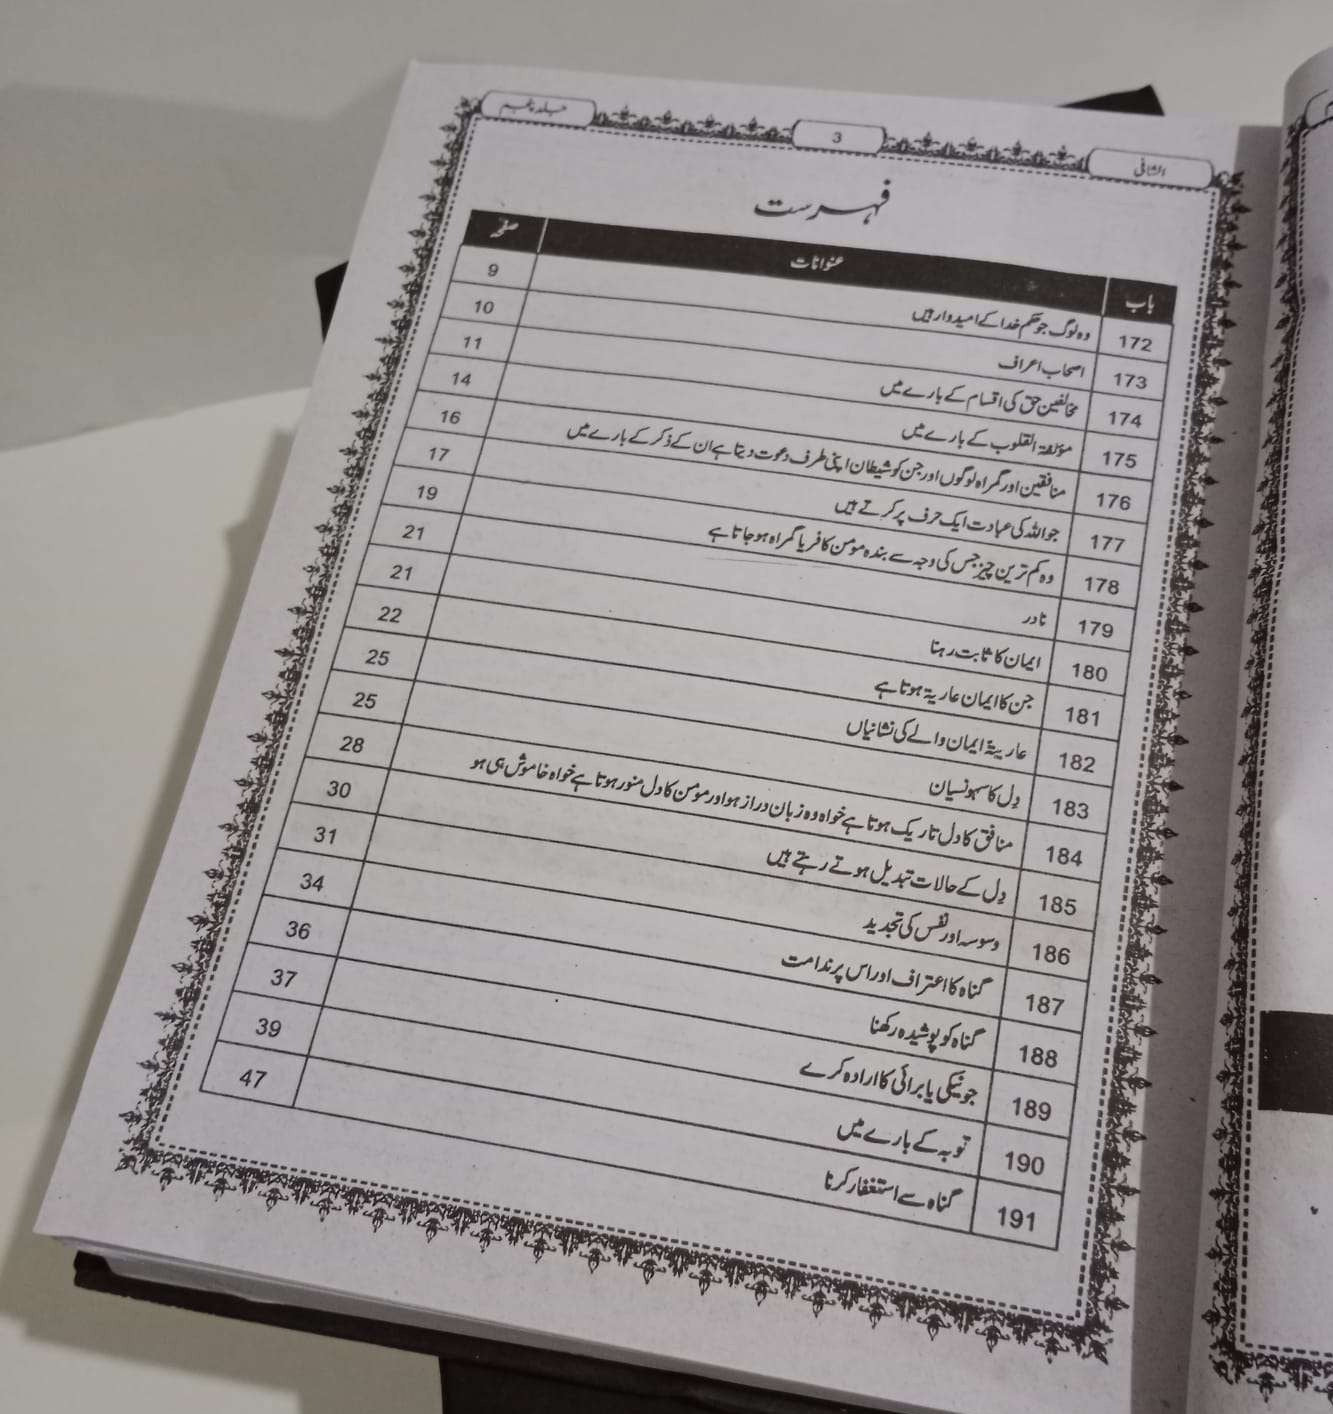 الشافی 3 جلد پنجم
فہرست
باب عنوانات صفحہ
172 وہ لوگ جو حکم خدا کے امیدوار ہیں 9
173 اصحاب اعراف 10
174 مخالفین حق کی اقسام کے بارے میں 11
175 مؤلفۃ القلوب کے بارے میں 14
176 منافقین اور گمراہ لوگوں اور جن کو شیطان اپنی طرف دعوت دیتا ہے ان کے ذکر کے بارے میں 16
177 جو اللہ کی عبادت ایک حرف پر کرتے ہیں 17
178 وہ کم ترین چیز جس کی وجہ سے بندہ مومن کافر یا گمراہ ہو جاتا ہے 19
179 نادر 21
180 ایمان کا ثابت رہنا 21
181 جن کا ایمان عاریۃ ہوتا ہے 22
182 عاریۃ ایمان والے کی نشانیاں 25
183 دِل کا سہو نسیان 25
184 منافق کا دل تاریک ہوتا ہے خواہ وہ زبان دراز ہو اور مومن کا دل منور ہوتا ہے خواہ خاموش ہی ہو 28
185 دِل کے حالات تبدیل ہوتے رہتے ہیں 30
186 وسوسہ اور نفس کی تجدید 31
187 گناہ کا اعتراف اور اس پر ندامت 34
188 گناہ کو پوشیدہ رکھنا 36
189 جو نیکی یا برائی کا ارادہ کرے 37
190 توبہ کے بارے میں 39
191 گناہ سے استغفار کرنا 47